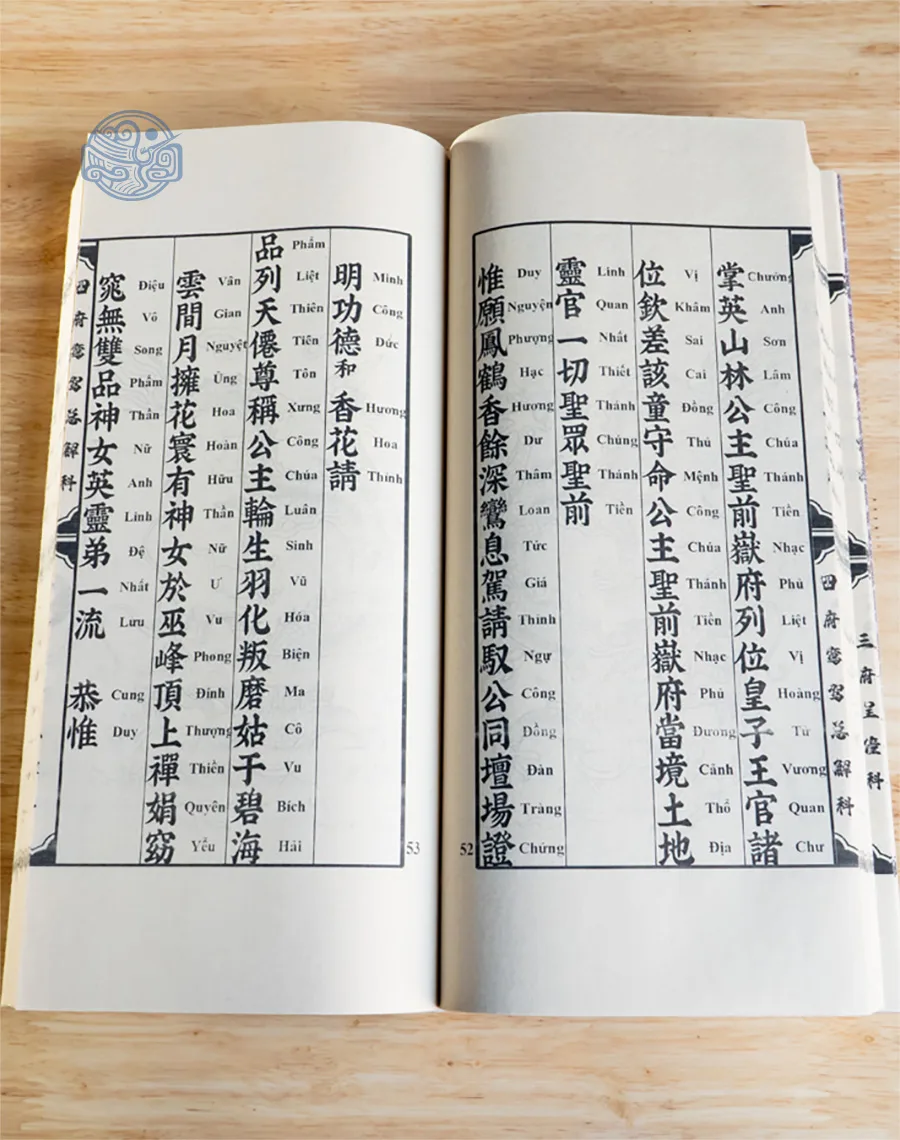 三府呈
科
四府
解科
掌英山林公主聖前嶽府列位皇子王官諸
Chưởng Anh Sơn Lâm Công Chúa Thánh Tiền Nhạc Phủ Liệt Vị Hoàng Tử Vương Quan Chư
位欽差該童守命公主聖前嶽府當境土地
Vị Khâm Sai Cai Đồng Thủ Mệnh Công Chúa Thánh Tiền Nhạc Phủ Dương Cảnh Thổ Địa
靈官一切聖眾聖前
Linh Quan Nhất Thiết Thánh Chúng Thánh Tiền
惟願鳳鶴香餘深鸞息駕請馭公同壇場證
Duy Nguyện Phượng Hạc Hương Dư Thâm Loan Tức Giá Thỉnh Ngự Công Đồng Đàn Tràng Chứng
52
明功德和香花請
Minh Công Đức Hương Hoa Thỉnh
品列天僊尊稱公主輪生羽化叛磨姑于碧海
Phẩm Liệt Thiên Tiên Tôn Xưng Công Chúa Luân Sinh Vũ Hóa Biện Ma Cô Vu Bích Hải
雲間月擁花寰有神女於巫峰頂上禪娟窈
Vân Gian Nguyệt Ủng Hoa Hoàn Hữu Thần Nữ Ư Vu Phong Đính Thượng Thiền Quyên Yểu
窕無雙品神女英靈弟一流 恭惟
Điệu Vô Song Phẩm Thần Nữ Anh Linh Đệ Nhất Lưu Cung Duy
四府
解科
53